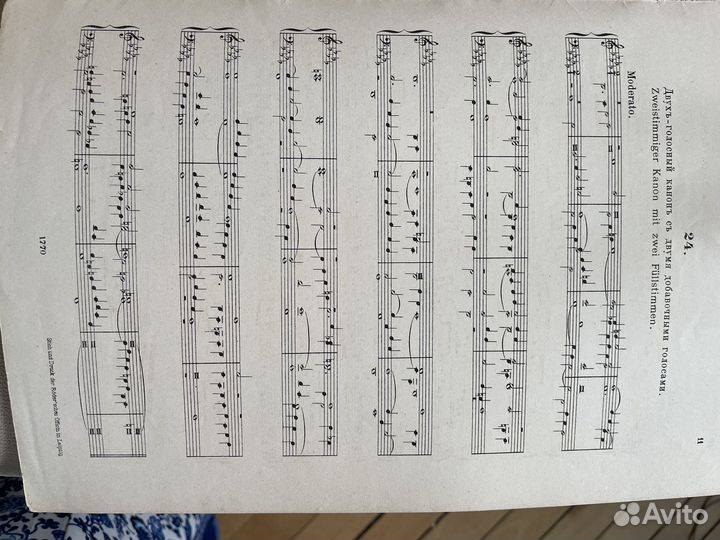 11
24.
Двухъ-голосный канонъ съ двумя добавочными голосами.
Zweistimmiger Kanon mit zwei Füllstimmen.
Moderato.
1770
Stich und Druck der Röder'schen Offizin in Leipzig.
Avito